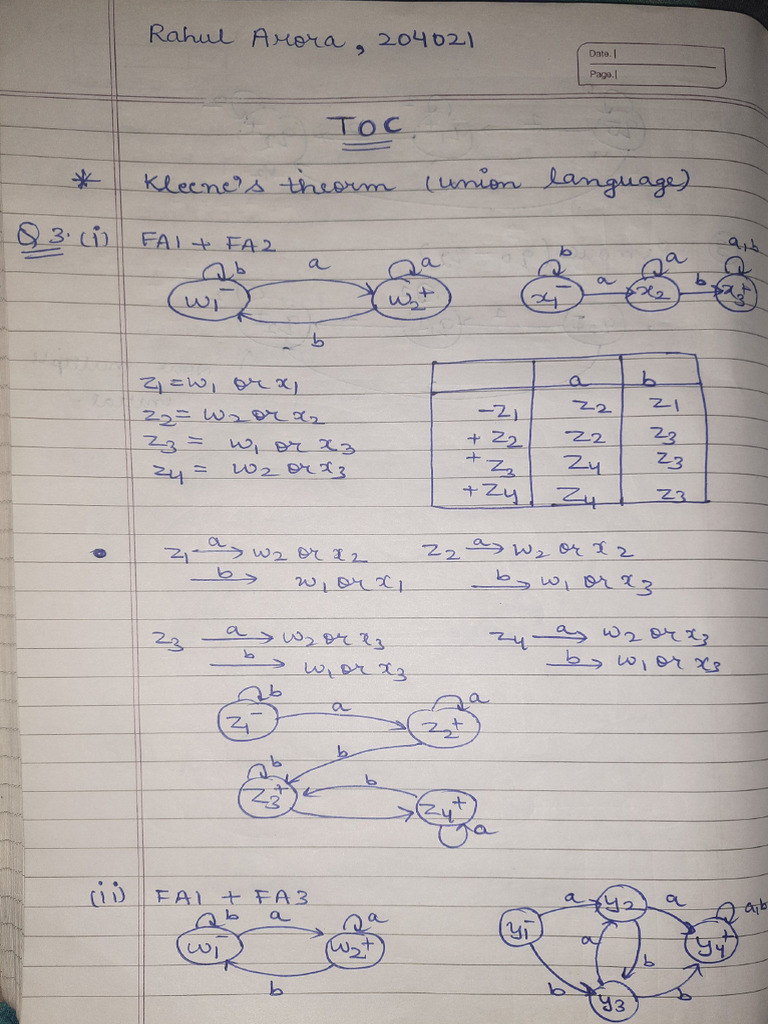 Rahul Arora, 204021
Date.
Page.
TOC
* Kleene's theorm (union language)
Q 3. (i) FA1 + FA2
b a a b a a,b
w1- w2+ x1- a x2 b x3+
b
z1 = w1 or x1
z2 = w2 or x2
z3 = w1 or x3
z4 = w2 or x3
a b
-z1 z2 z1
+z2 z2 z3
+z3 z4 z3
+z4 z4 z3
• z1 a→ w2 or x2 z2 a→ w2 or x2
b→ w1 or x1 b→ w1 or x3
z3 a→ w2 or x3 z4 a→ w2 or x3
b→ w1 or x3 b→ w1 or x3
b a a
z1- z2+
b b
z3+ b z4+
a
(ii) FA1 + FA3
b a a a y2 a a,b
w1- w2+ y1- a b y4+
b b y3 b